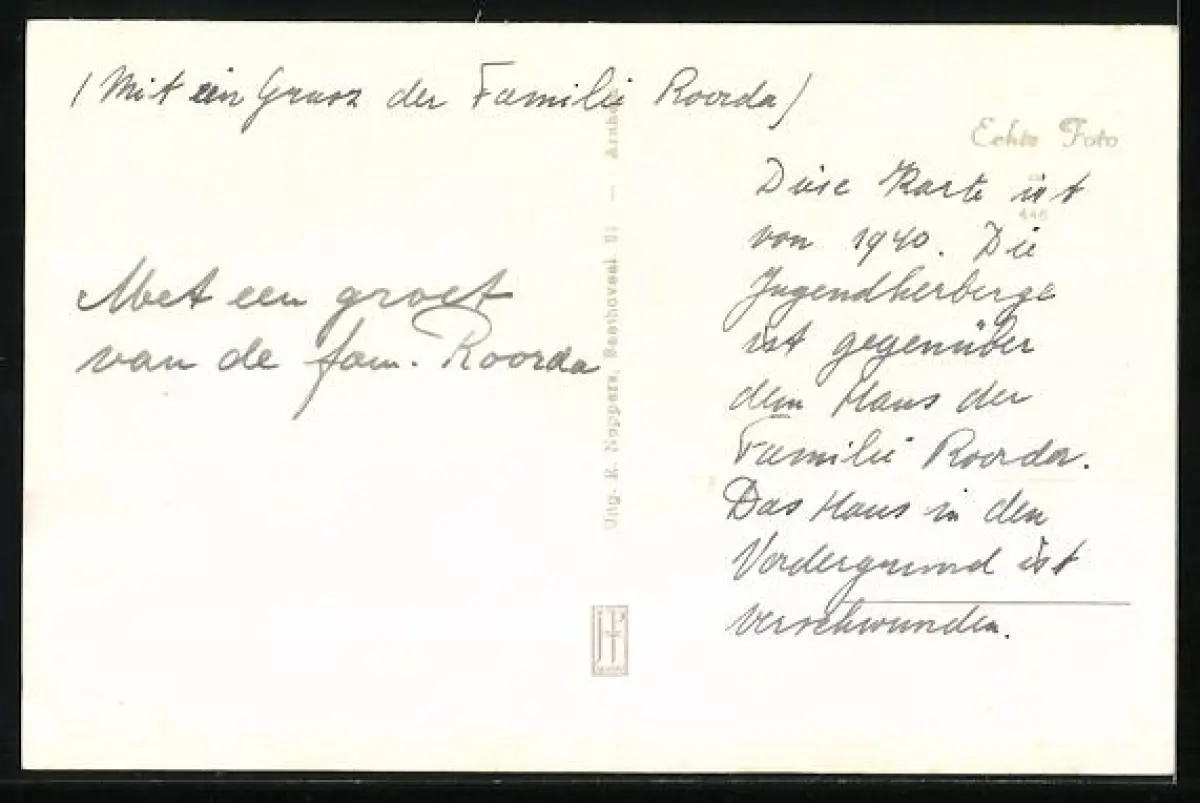 (Mit ein Grusz der Familie Roorda)
Met een groet
van de fam. Roorda
Echte Foto
446
Diese Karte ist
von 1940. Die
Jugendherberge
ist gegenüber
dem Haus der
Familie Roorda.
Das Haus in den
Vordergrund ist
verschwunden.
Uitg. K. Noppers, 91 — Arnhem
JP